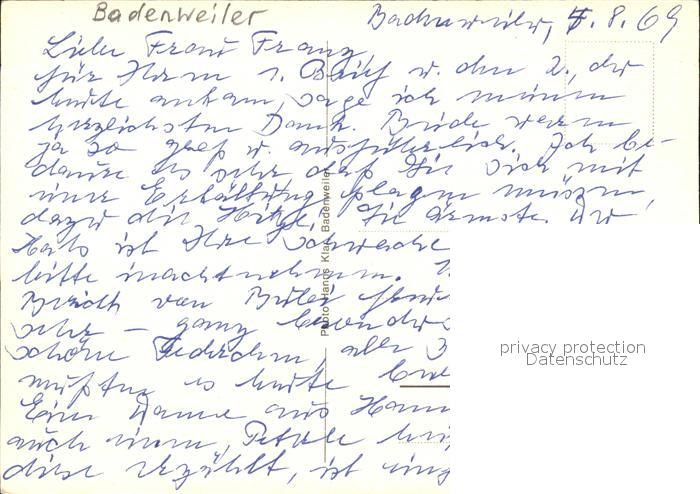 Badenweiler
Badenweiler, 4.8.69
Liebe Frau Franz,
für Ihren 1. Brief u. den 2., der
heute ankam, sage ich meinen
herzlichsten Dank. Beide waren
ja so groß u. ausführlich. Ich be-
daure es sehr daß Sie sich mit
einer Erkältung plagen müssen,
dazu die Hitze! Sie Ärmste. Der
Hals ist Ihre Schwäche
bitte inachtnehmen.
Bericht von
sehr – ganz besonders
schöne Federchen, alle 3
mußten es heute
Eine Dame aus Hann
auch einen
diese erzählt, ist
Photo Hanns Klar, Badenweiler
privacy protection
Datenschutz